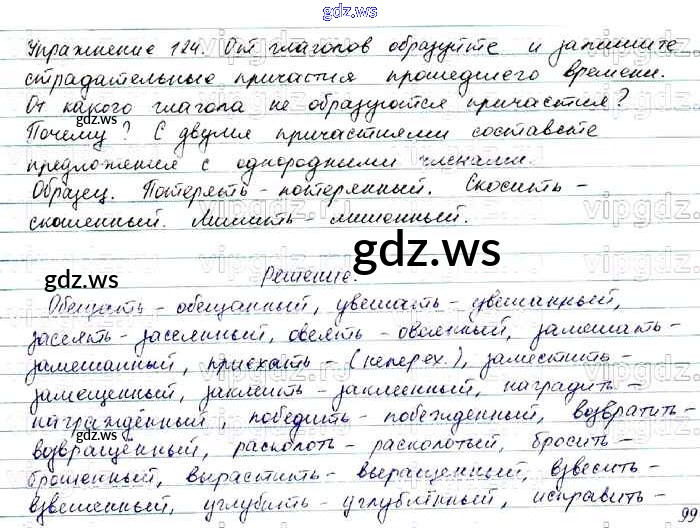 gdz.ws
Упражнение 124. От глаголов образуйте и запишите
страдательные причастия прошедшего времени.
От какого глагола не образуются причастия?
gdz.ws
Почему? С двумя причастиями составьте
предложения с однородными членами.
Образец. Потерять - потерянный. Скосить -
скошенный. Лишить - лишенный.
gdz.ws
gdz.ws
Решение.
Обещать - обещанный, увешать - увешанный,
засеять - засеянный, овеять - овеянный, замешать -
замешанный, приехать - (неперех.), заместить -
замещенный, заклеить - заклеенный, наградить -
gdz.ws
награждённый, победить - побежденный, возвратить -
возвращённый, расколоть - расколотый, бросить -
gdz.ws
брошенный, вырастить - выращенный, взвесить -
взвешенный, углубить - углублённый, исправить -
99